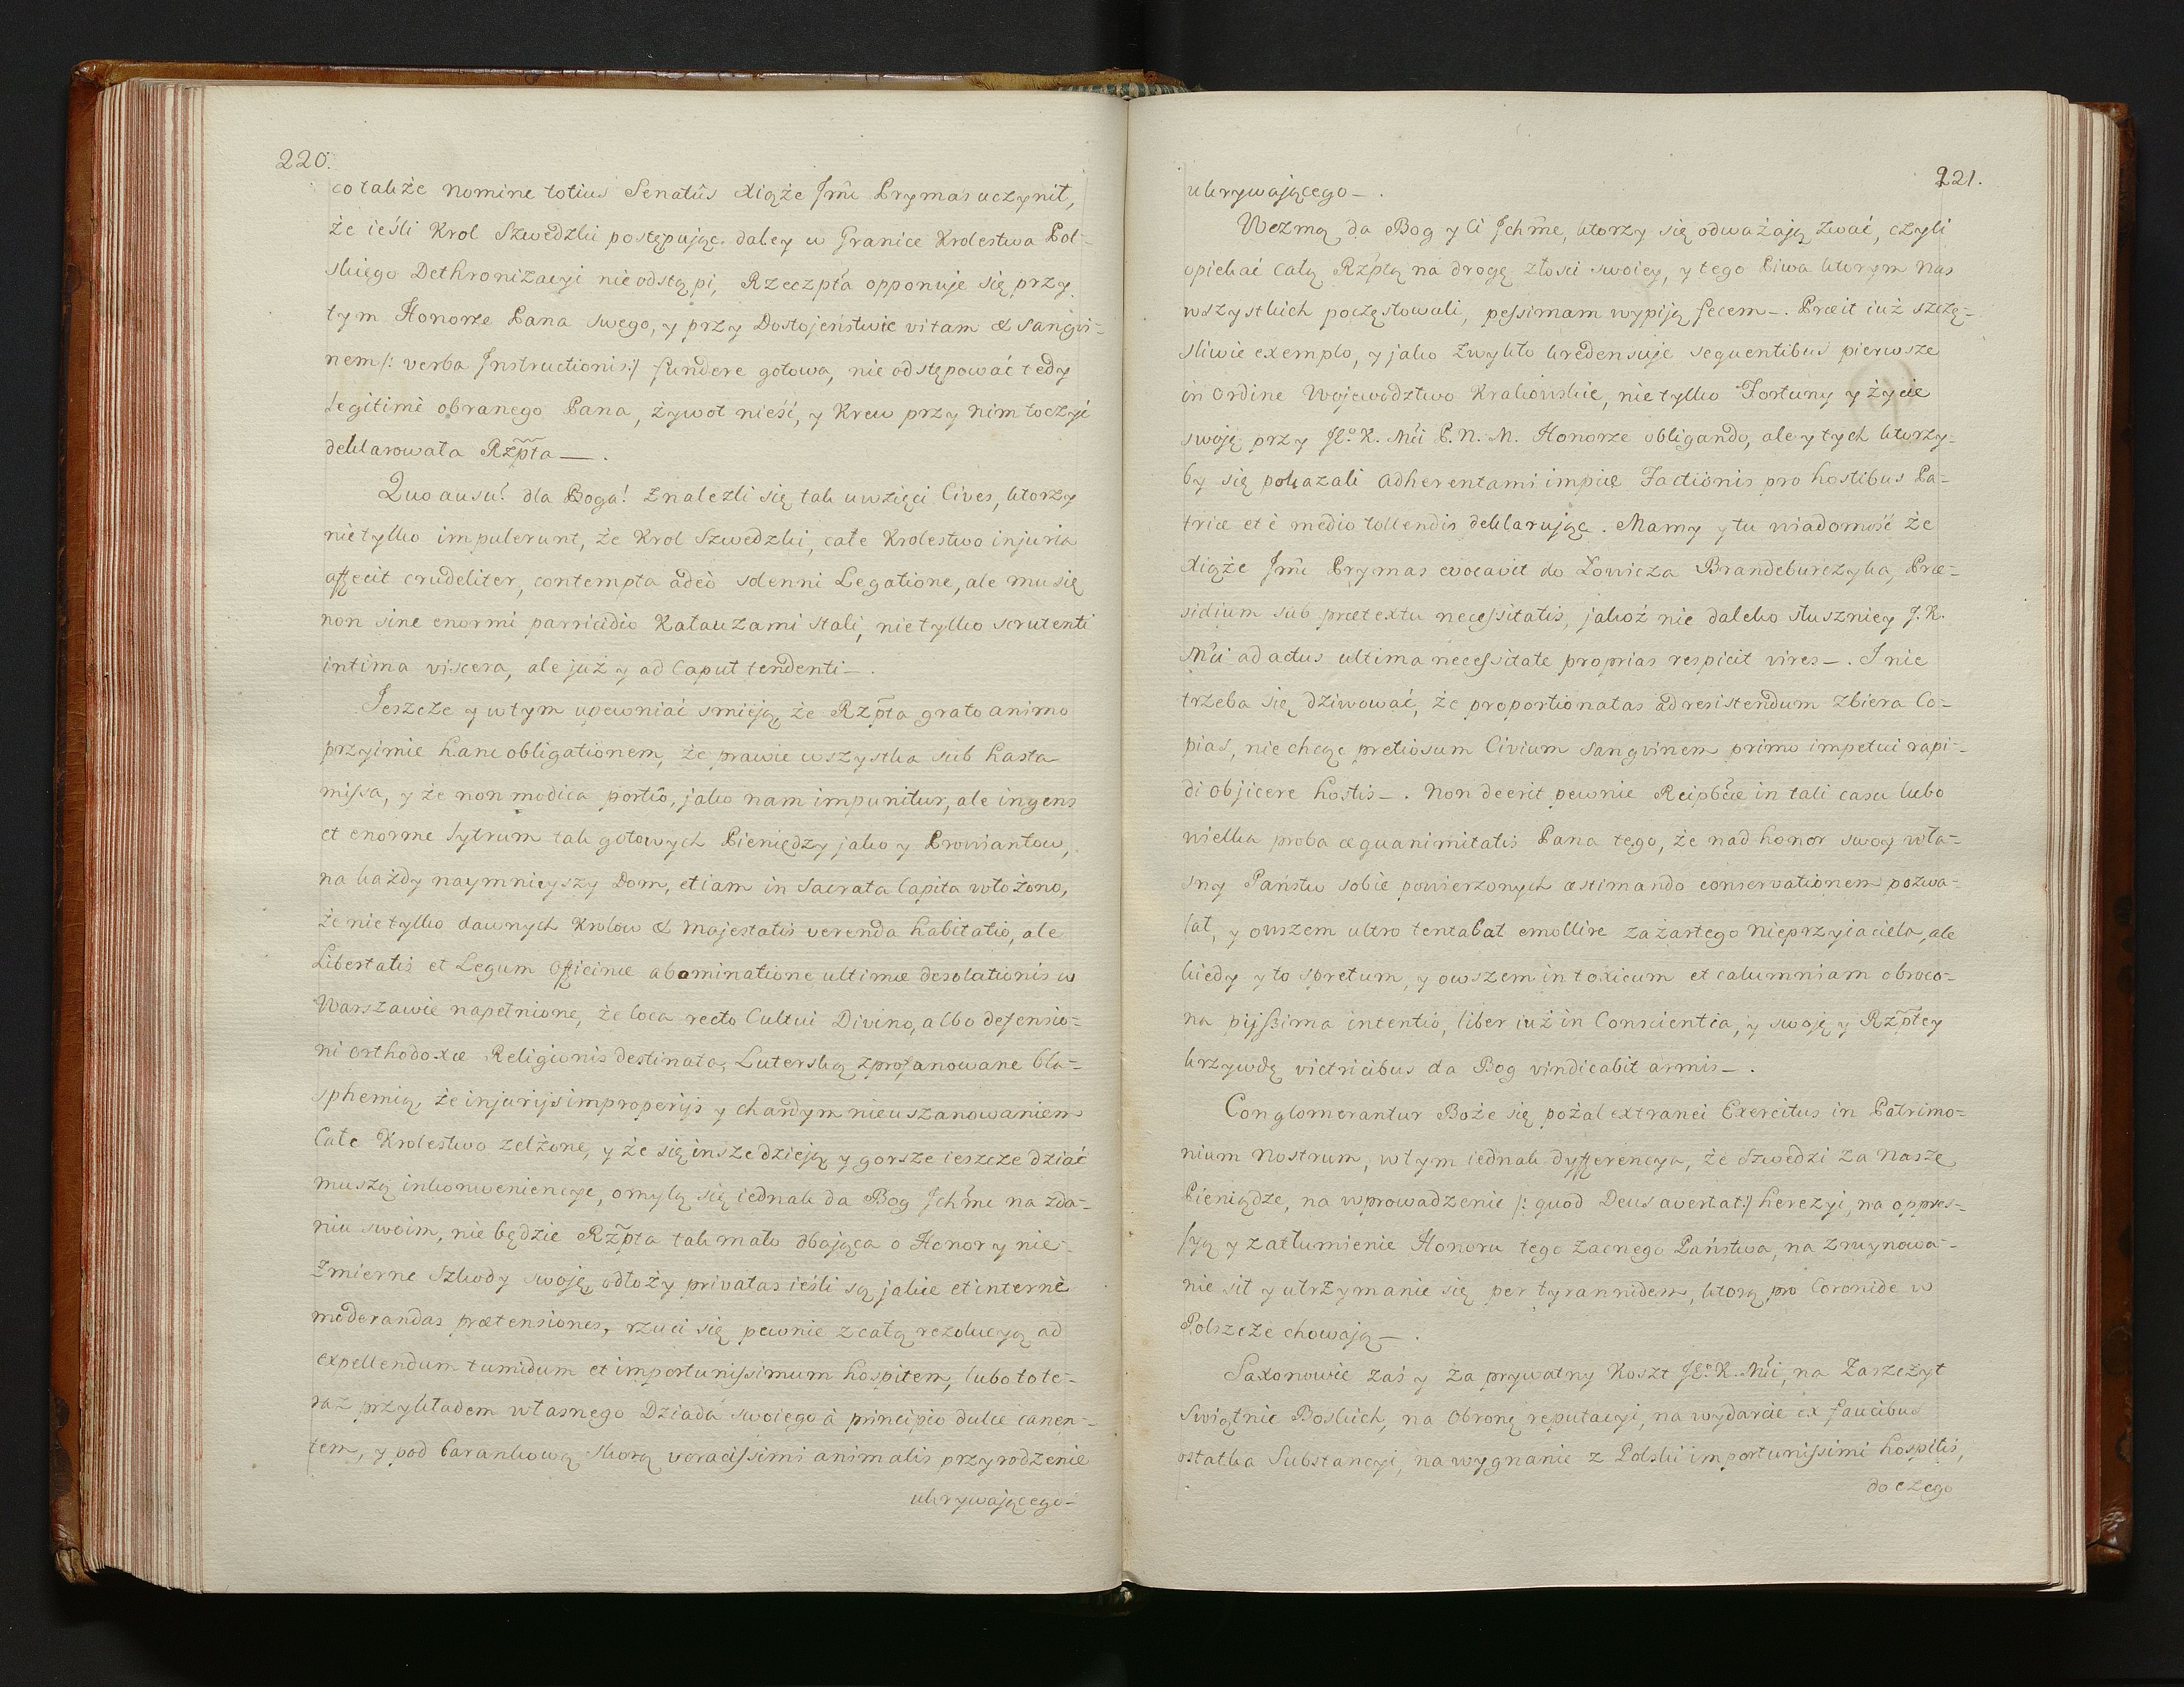 220.
co także nomine totius Senatûs Xiąże Jmć Prymas uczynił,
że ieśli Krol Szwedzki postępując daley w Granice Krolestwa Pol-
skiego Dethronizacyi nie odstąpi, Rzeczpta opponuje się przy
tym Honorze Pana swego, y przy Dostojeństwie vitam & sangvi-
nem /: verba Instructionis :/ fundere gotowa, nie odstępować tedy
legitimè obranego Pana, żywot nieść, y Krew przy nim toczyć
deklarowała Rzpta —.
Quo ausu? dla Boga! znalezli się tak uwzięci Cives, ktorzy
nie tylko impulerunt, że Krol Szwedzki, całe Krolestwo injuria
affecit crudeliter, contempta adeò solenni Legatione, ale mu się
non sine enormi parricidio Katauzami stali, nie tylko scrutenti
intima viscera, ale już y ad Caput tendenti —.
Jeszcze y w tym upewniać smieją, że Rzpta grato animo
przyimie hanc obligationem, że prawie wszystka sub hasta
missa, y że non modica portio, jako nam impunitur, ale ingens
et enorme lytrum tak gotowych Pieniędzy jako y Prowiantow,
na każdy naymnieyszy Dom, etiam in Sacrata Capita włożono,
że nie tylko dawnych Krolow & Majestatis verenda habitatio, ale
Libertatis et Legum Officinæ abominatione ultimæ desolationis w
Warszawie napełnione, że loca recto Cultui Divino, albo defensio-
ni orthodoxæ Religionis destinata, Luterską zprofanowane bla-
sphemią, że injurijs improperijs y chardym nieuszanowaniem
Całe Krolestwo zelżone, y że się insze dzieją y gorsze ieszcze dziać
muszą inkonweniencye, omylą się iednak da Bog Jchmć na zda-
niu swoim, nie będzie Rzpta tak mało dbająca o Honor y nie-
zmierne Szkody swoję, odłoży privatas ieśli są jakie et internè
moderandas prætensiones, rzuci się pewnie z całą rezolucyą ad
expellendum tumidum et importunissimum hospitem, lubo to te-
raz przykładem własnego Dziada swoiego à principio dulce canen-
tem, y pod barankową skorą voracissimi animalis przyrodzenie
ukrywającego-
221.
ukrywającego —.
Wezmą da Bog y ci Jchmć, ktorzy się odważają zwać, czyli
opiekać całą Rzptą na drogę złości swoiey, y tego Piwa ktorym nas
wszystkich poczęstowali, pessimam wypiją fecem —. Præit iuż szczę-
sliwie exemplo, y jako zwykło kredensuje sequentibus pierwsze
in ordine Wojewodztwo Krakowskie, nie tylko Fortuny y życie
swoję przy JEo. K. Mći P. N. M. Honorze obligando, ale y tych ktorzy-
by się pokazali adherentami impiæ Factionis pro hostibus Pa-
triæ et è medio tollendis deklarując. Mamy y tu wiadomość że
Xiąże Jmć Prymas evocavit do Łowicza Brandeburczyka, Præ-
sidium sub prætextu necessitatis, jakoż nie daleko słuszniey J. K.
Mći ad actus ultima necessitate proprias respicit vires —. I nie
trzeba się dziwować, że proportionatas ad resistendum zbiera Co-
pias, nie chcąc pretiosum Civium sangvinem primo impetui rapi-
di objicere hostis —. Non deerit pewnie Reipbcæ in tali casu lubo
wielka proba æquanimitatis Pana tego, że nad honor swoy wła-
sny Państw sobie powierzonych æstimando conservationem pozwa-
lał, y owszem ultro tentabat emollire zażartego nieprzyiaciela, ale
kiedy y to spretum, y owszem in toxicum et calumniam obroco-
na pijssima intentio, liber iuż in Conscientia, y swoję y Rzptey
krzywdę victricibus da Bog vindicabit armis —.
Conglomerantur Boże się pożal extranei Exercitus in Patrimo-
nium nostrum, w tym iednak dyfferencya, że Szwedzi za nasze
Pieniądze, na wprowadzenie /: quod Deus avertat :/ herezyi, na oppres-
syą y zatłumienie Honoru tego zacnego Państwa, na zruynowa-
nie sił y utrzymanie się per tyrannidem, ktorą pro Coronide w
Polszcze chowają —.
Saxonowie zaś y za prywatny Koszt JEo. K. Mći, na zaszczyt
Swiątnic Boskich, na Obronę reputacyi, na wydarcie ex faucibus
ostatka Substancyi, na wygnanie z Polski importunissimi hospitis,
do czego